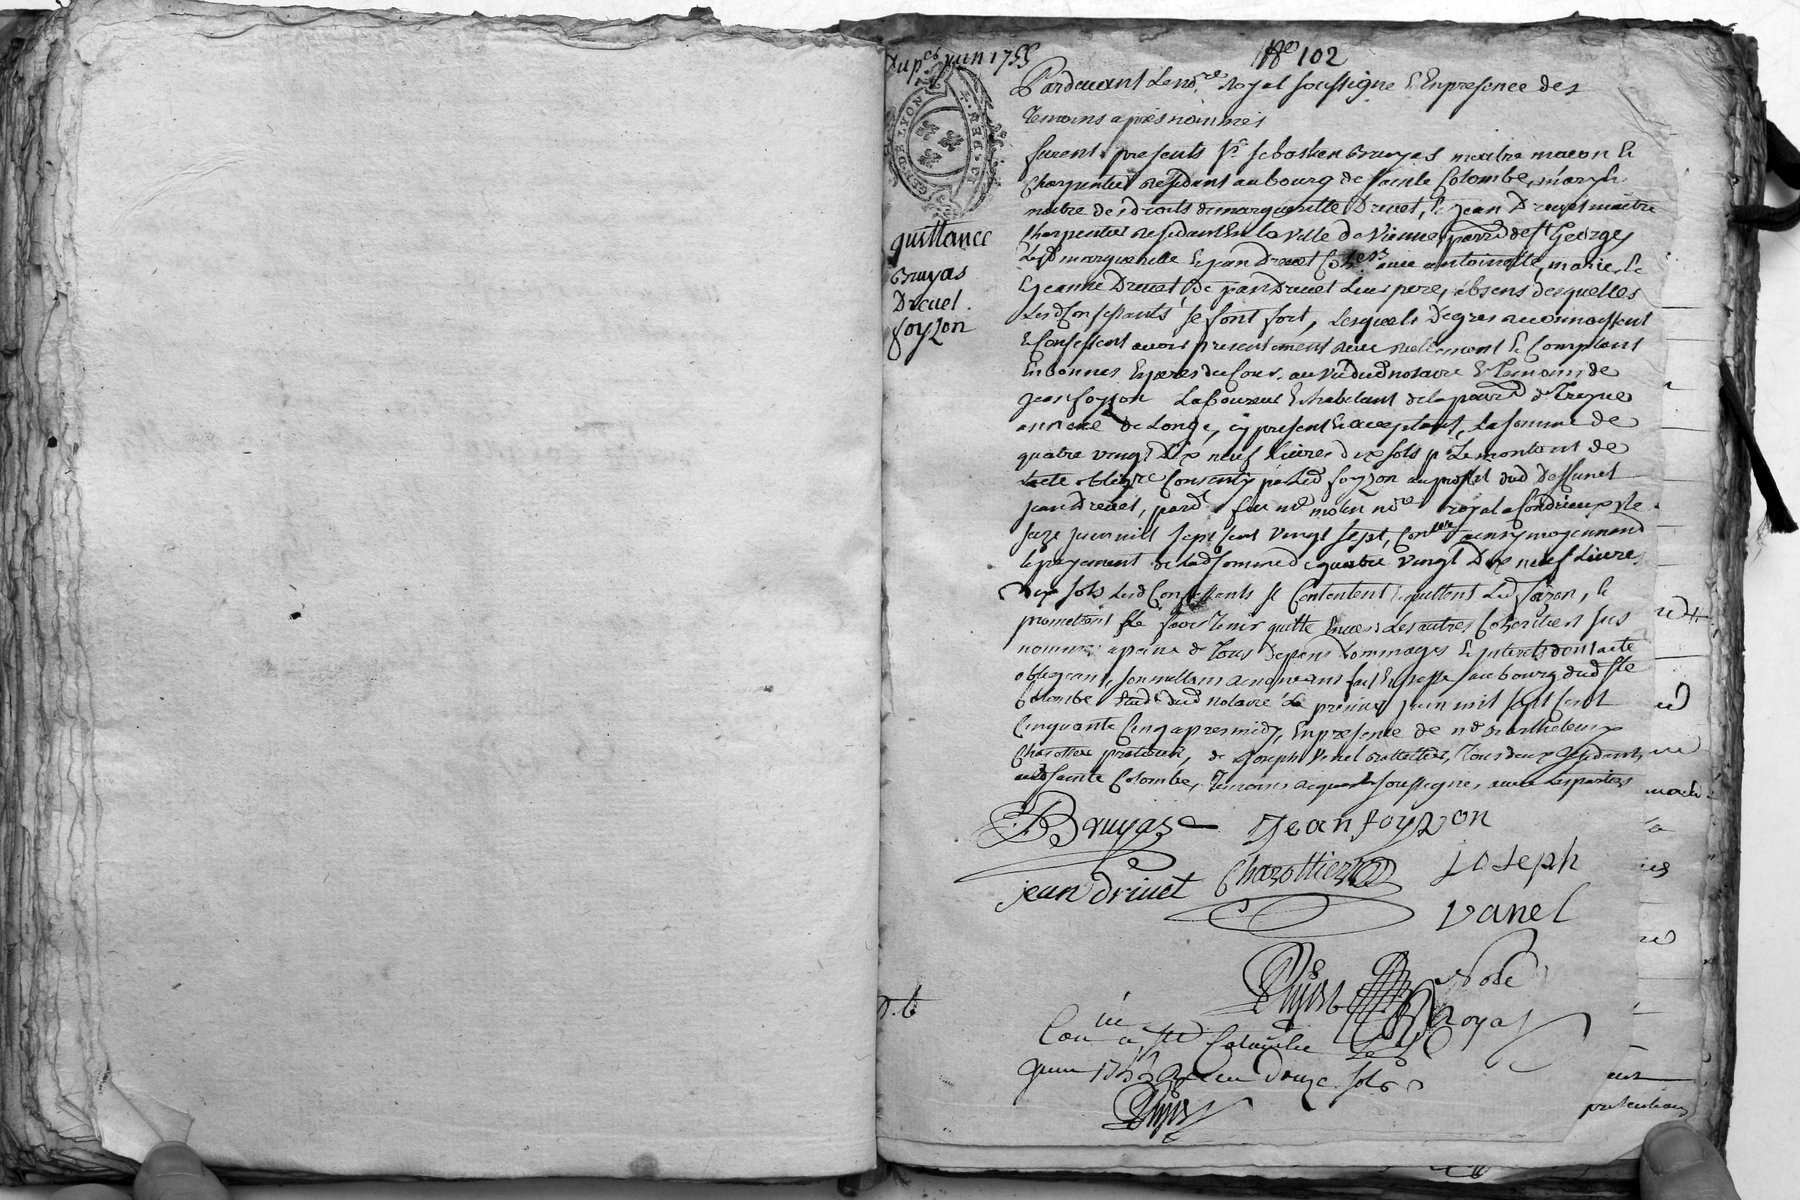 Du p.er juin 1755
N.o 102
GEN. DE LYON
quittance
Bruyas
Drevet
foyzon
Pardevant Le no.re royal soussigne & Enpresence des
Temoins apres nommés
furent presents s.r sebastien Bruyas maitre macon &
charpentier residant au bourg de sainte Colombe, mary &
maitre des droits de marguerite Drevet, & jean Drevet maitre
charpentier residant En la ville de Vienne parr.e de s.t George
Lesd marguerite & jean Drevet avec antoinette, marie, &
& jeanne Drevet De jean Drevet Leur pere, absens desquelles
Lesd Confessants se font fort, Lesquels De gres reconnoissent
& Confessent avoir presentement receu reellement & Comptant
En bonnes Especes du Cours, au Vu dud notaire & Temoins de
jean foyzon Laboureur & habitant de la parr.e de Treyve
annexe de Longe, icy present & acceptant, La somme de
quatre vingt Dix neuf Livres dix sols p.r Le montant de
Lacte oblig.re Consenty par Led foyzon au profit dud Deffunt
jean Drevet, pard.t feu m.e molin no.re royal a Condrieux Le
juin mill sept Cent vingt sept, ainsy moyennant
le payement de lad somme de quatre vingt Dix neuf Livres
Dix sols Lesd Confessants se Contentent, quittent Led foizon, &
promettent Le faire Tenir quitte Envers Les autres Coheritiers sus
nommes a peine de Tous Depens Dommages & jnterets dont acte
obligeant, soumettant renonceant fait & passe au bourg dud ste
Colombe Etude dud notaire Le premier juin mil sept Cent
Cinquante Cinq apres midy, En presence de m.e Barthelemy
Charottier praticien, & de joseph Vanel Tous deux residants
aud sainte Colombe, Temoins requis & soussignes, avec Les parties
Bruyas jean foyzon
jean drivet Charottier joseph
vanel
Note
Royal
Con.lé a ste Colombe Le
juin 1755 Reçu Douze sols